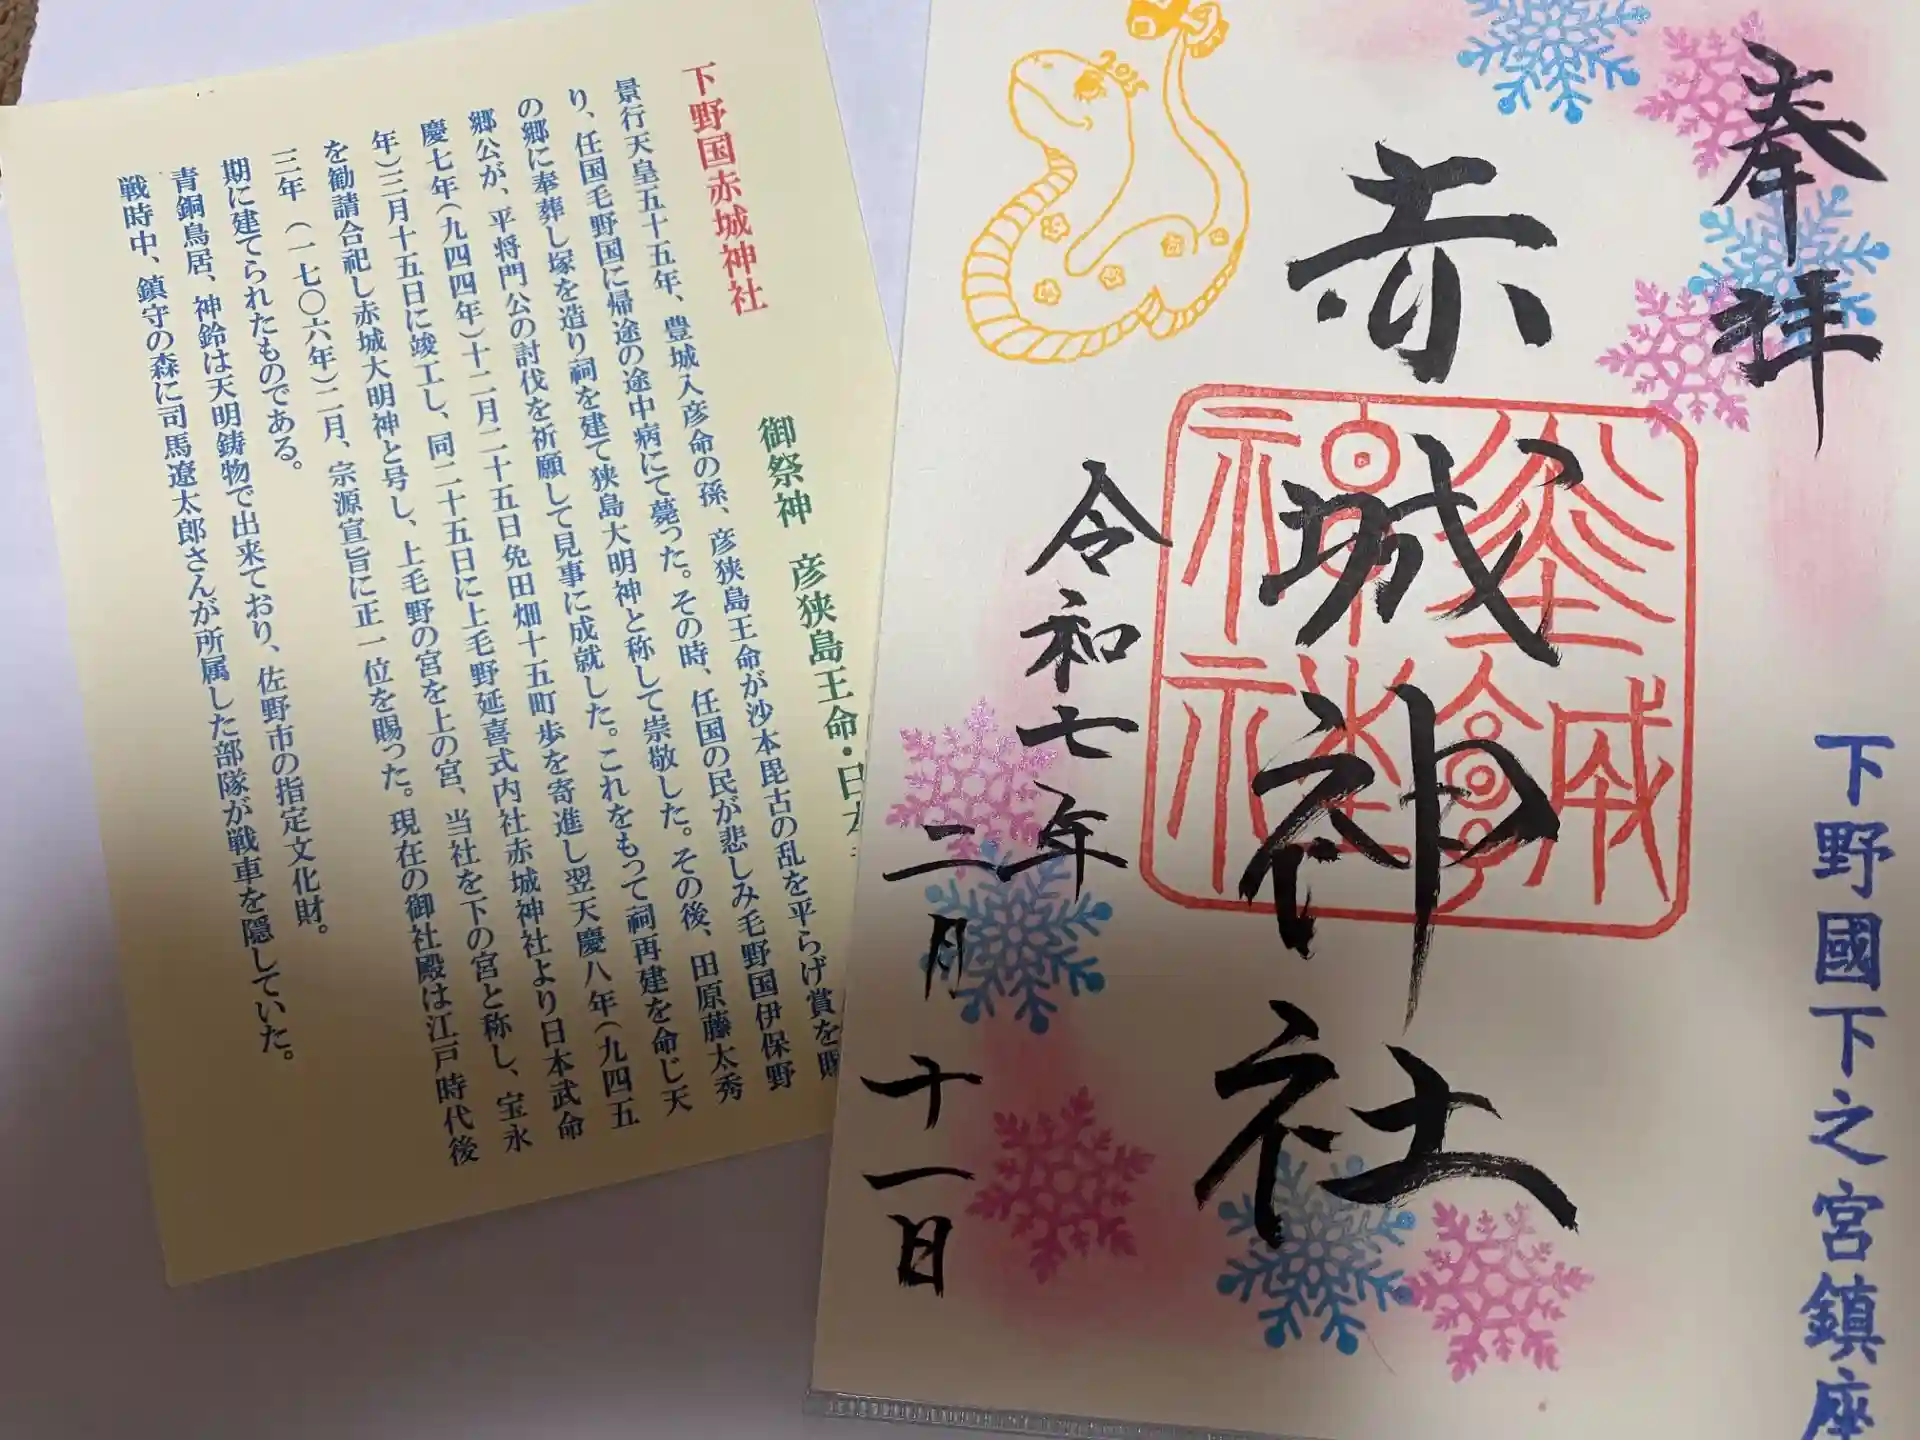 下野国赤城神社
御祭神 彦狭島王命・日本
景行天皇五十五年、豊城入彦命の孫、彦狭島王命が沙本毘古の乱を平らげ賞を賜
り、任国毛野国に帰途の途中病にて薨った。その時、任国の民が悲しみ毛野国伊保野
の郷に奉葬し塚を造り祠を建て狭島大明神と称して崇敬した。その後、田原藤太秀
郷公が、平将門公の討伐を祈願して見事に成就した。これをもって祠再建を命じ天
慶七年(九四四年)十二月二十五日免田畑十五町歩を寄進し翌天慶八年(九四五
年)三月十五日に竣工し、同二十五日に上毛野延喜式内社赤城神社より日本武命
を勧請合祀し赤城大明神と号し、上毛野の宮を上の宮、当社を下の宮と称し、宝永
三年(一七〇六年)二月、宗源宣旨に正一位を賜った。現在の御社殿は江戸時代後
期に建てられたものである。
青銅鳥居、神鈴は天明鋳物で出来ており、佐野市の指定文化財。
戦時中、鎮守の森に司馬遼太郎さんが所属した部隊が戦車を隠していた。
奉拝
下野國下之宮鎮座
赤城神社
令和七年
二月十一日
2025